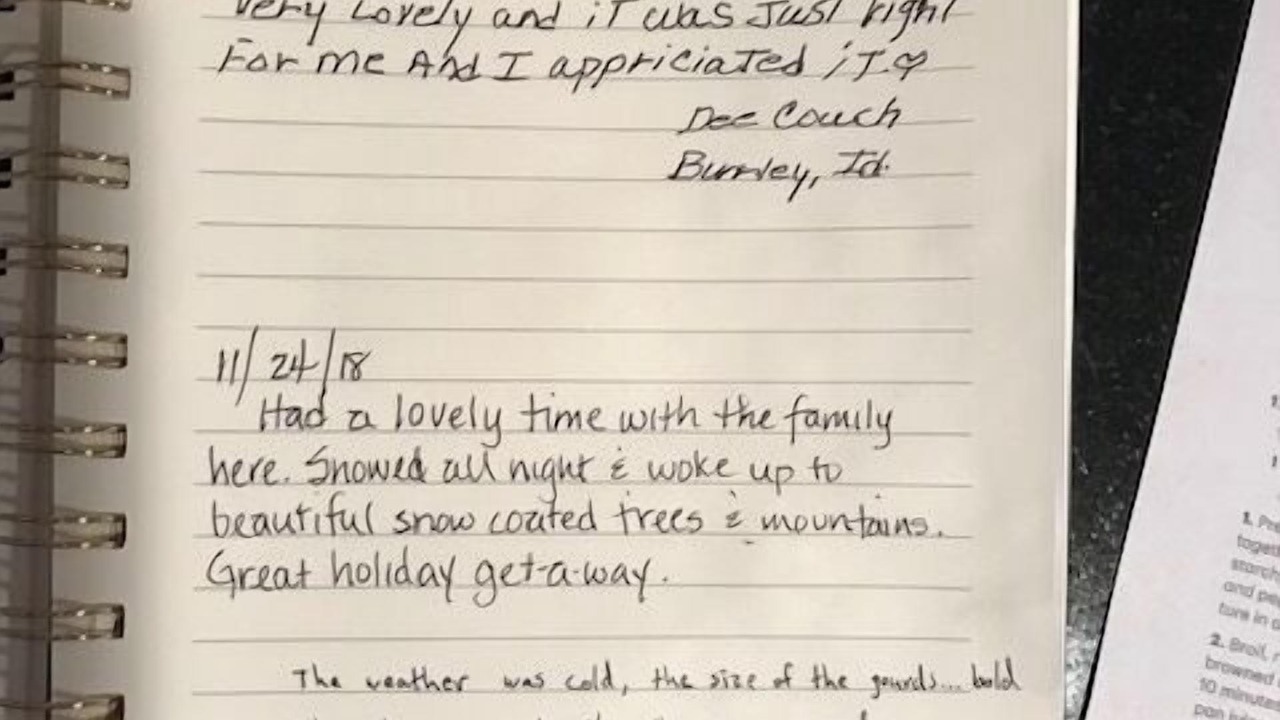 Very Lovely and iT was Just right
For me And I appriciaTed iT.♡
Dee Couch
Burley, Id.
11/24/18
Had a lovely time with the family
here. Snowed all night & woke up to
beautiful snow coated trees & mountains.
Great holiday get-a-way.
The weather was cold, the size of the gourds... bold
1.
starch
and
ture in a
2. Broil,
browned
10 minutes
pan